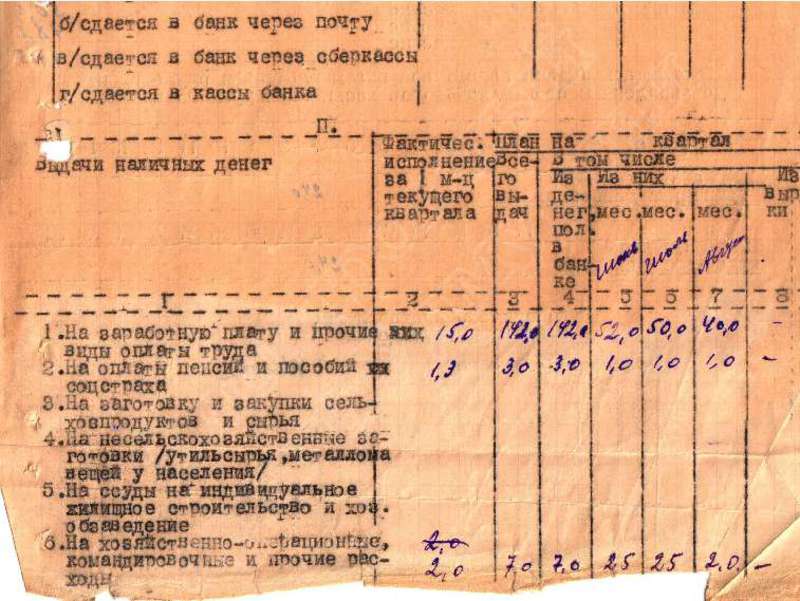 б/сдается в банк через почту
в/сдается в банк через сберкассы
г/сдается в кассы банка
П.
Выдачи наличных денег
Фактичес. План на квартал
исполнение Все- в том числе
за 1 м-ц го Из Из них Из
текущего вы- де- выр
квартала дач нег, мес. мес. мес. ки
пол.
в
бан- июль Август
ке
1 2 3 4 5 6 7 8
1. На заработную плату и прочие 15,0 142,0 142,0 52,0 50,0 40,0 -
виды оплаты труда
2. На оплаты пенсий и пособий 1,3 3,0 3,0 1,0 1,0 1,0 -
соцстраха
3. На заготовку и закупки сель-
хозпродуктов и сырья
4. На несельскохозяйственные за-
готовки /утильсырья, металлома
вещей у населения/
5. На ссуды на индивидуальное
жилищное строительство и хоз.
обзаведение
6. На хозяйственно-операционные, 2,0
командировочные и прочие рас- 2,0 7,0 7,0 2,5 2,5 2,0 -
ходы